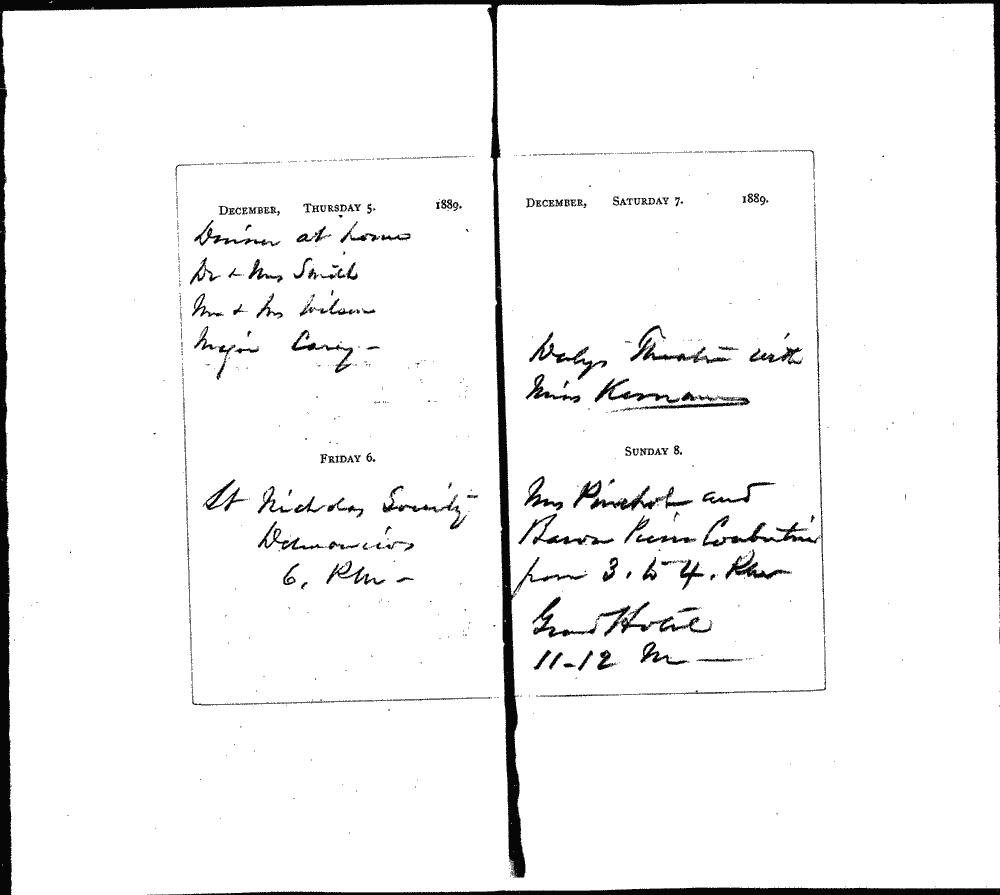 DECEMBER, THURSDAY 5. 1889.
Dinner at home
Dr & Mrs Smith
Mr & Mrs Wilson
Major Carey -
FRIDAY 6.
St Nicholas Society
Delmonicos
6. P.M -
DECEMBER, SATURDAY 7. 1889.
Dalys Theatre with
Miss
SUNDAY 8.
Mrs Pinchot and
Baron Pierre Coubertin
from 3. to 4. P.M
Grand Hotel
11-12 M —